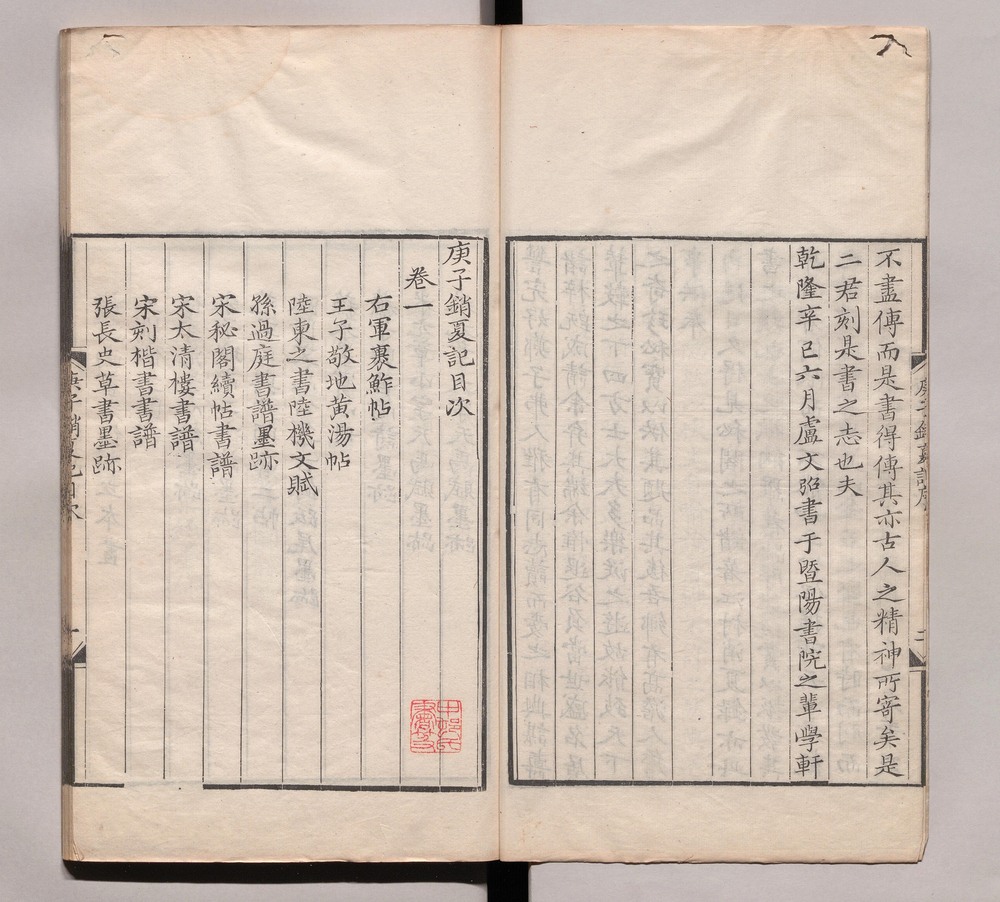 不盡傳而是書得傳其亦古人之精神所寄矣是
二君刻是書之志也夫
乾隆辛巳六月盧文弨書于暨陽書院之輩學軒
庚子銷夏記序
二
庚子銷夏記目次
卷一
右軍裹鮓帖
王子敬地黃湯帖
陸柬之書陸機文賦
孫過庭書譜墨跡
宋秘閣續帖書譜
宋太清樓書譜
宋刻楷書書譜
張長史草書墨跡
庚子銷夏記目次
一